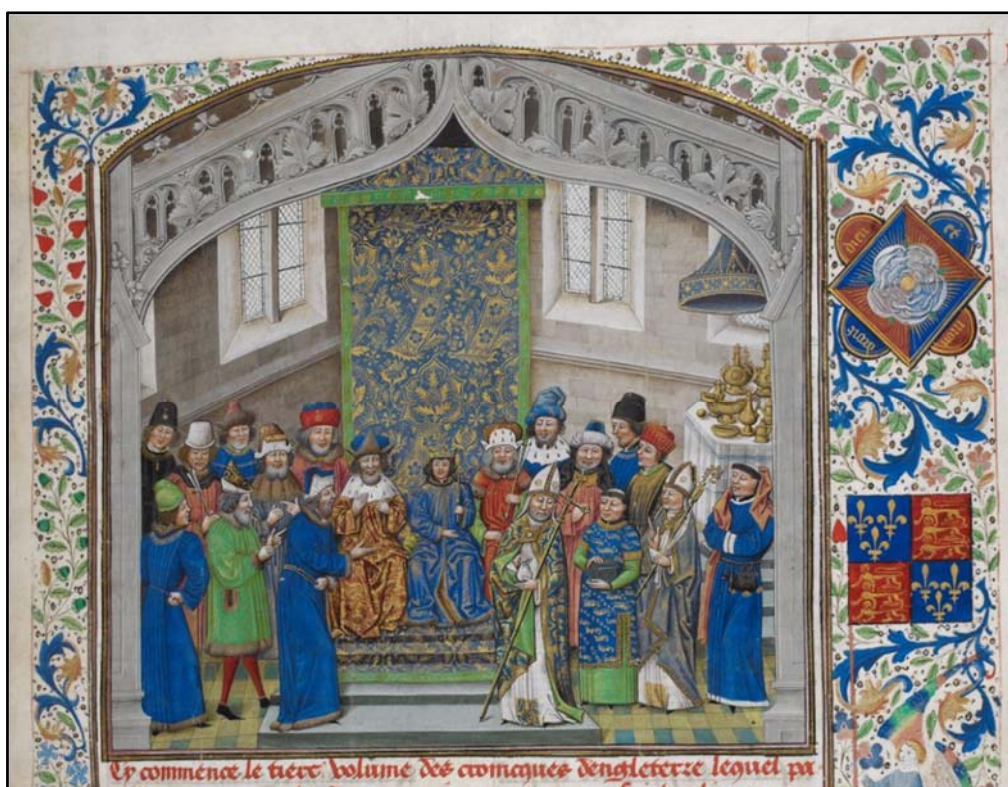 dieu et
mon droit
Cy commence le tierc volume des cronicques dengleterre lequel pa